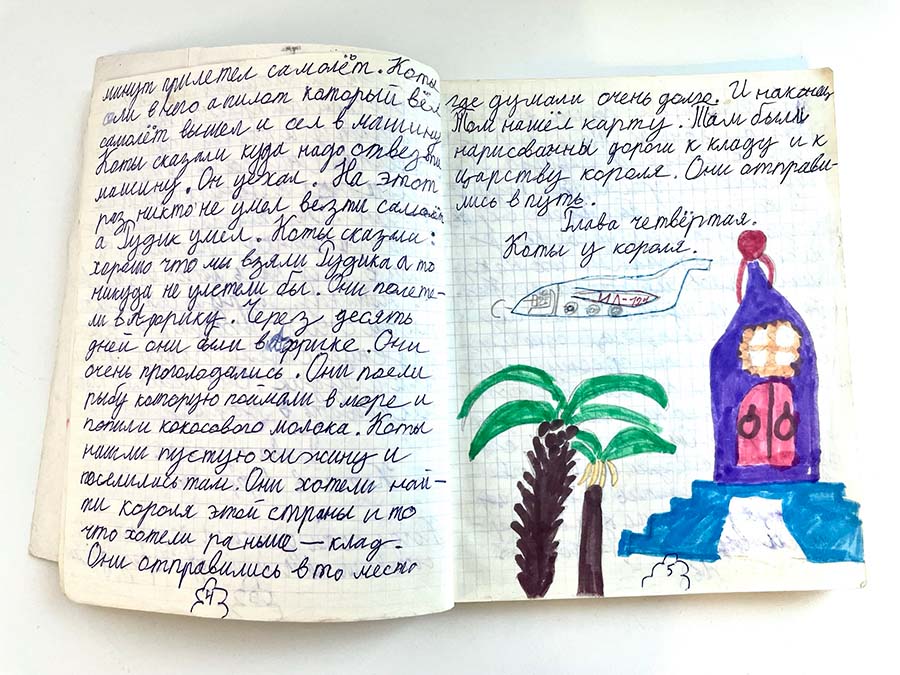 минут прилетел самолёт. Коты
сли в него а пилот который вёл
самолёт вышел и сел в машину
Коты сказали куда надо отвезти
машину. Он уехал. На этот
раз никто не умел везти самолёт
а Гудик умел. Коты сказали:
хорошо что мы взяли Гудика а то
никуда не улетели бы. Они полете-
ли в Африку. Через десять
дней они были в Африке. Они
очень проголодались. Они поели
рыбу которую поймали в море и
попили кокосового молока. Коты
нашли пустую хижину и
поселились там. Они хотели най-
ти короля этой страны и то
что хотели раньше — клад.
Они отправились в то место
4
где думали очень долго. И наконец
Том нашёл карту. Там были
нарисованны дороги к кладу и к
царству короля. Они отправи-
лись в путь.
Глава четвёртая.
Коты у короля.
5